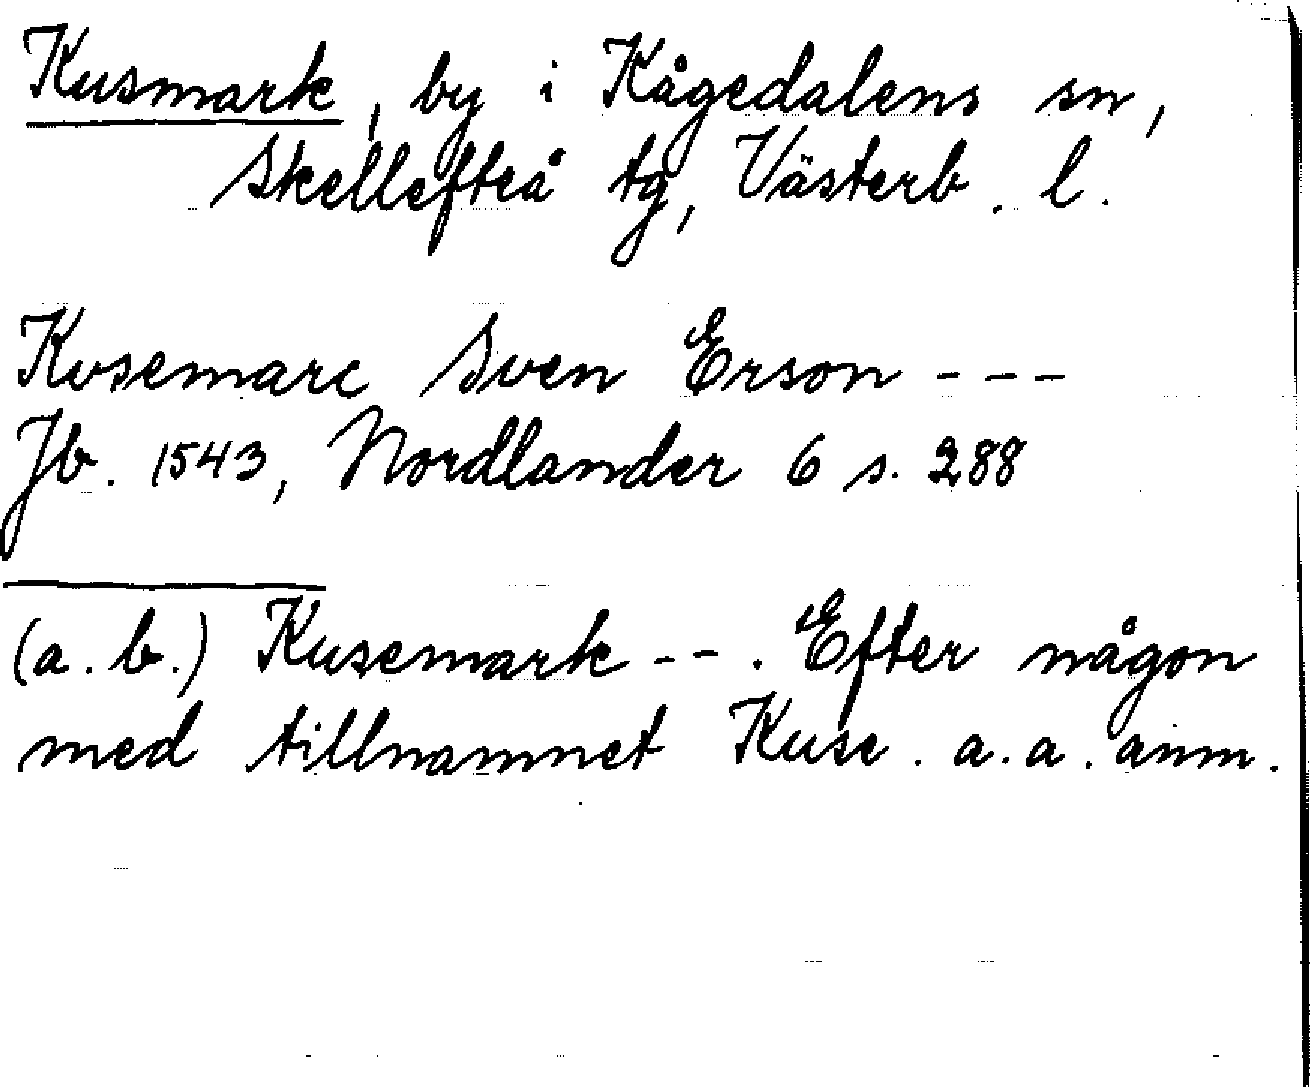 Kusmark, by i Kågedalens sn,
Skellefteå tg, Västerb. l.
Kvsemarc Sven Erson ---
Jb. 1543, Nordlander 6 s. 288
(a. b.) Kusemark --. Efter någon
med tillnamnet Kuse. a. a. anm.